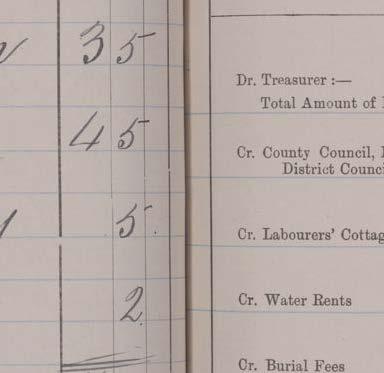 35
45
5.
2.
Dr. Treasurer :—
Total Amount of
Cr. County Council,
District Counci
Cr. Labourers' Cottag
Cr. Water Rents
Cr. Burial Fees